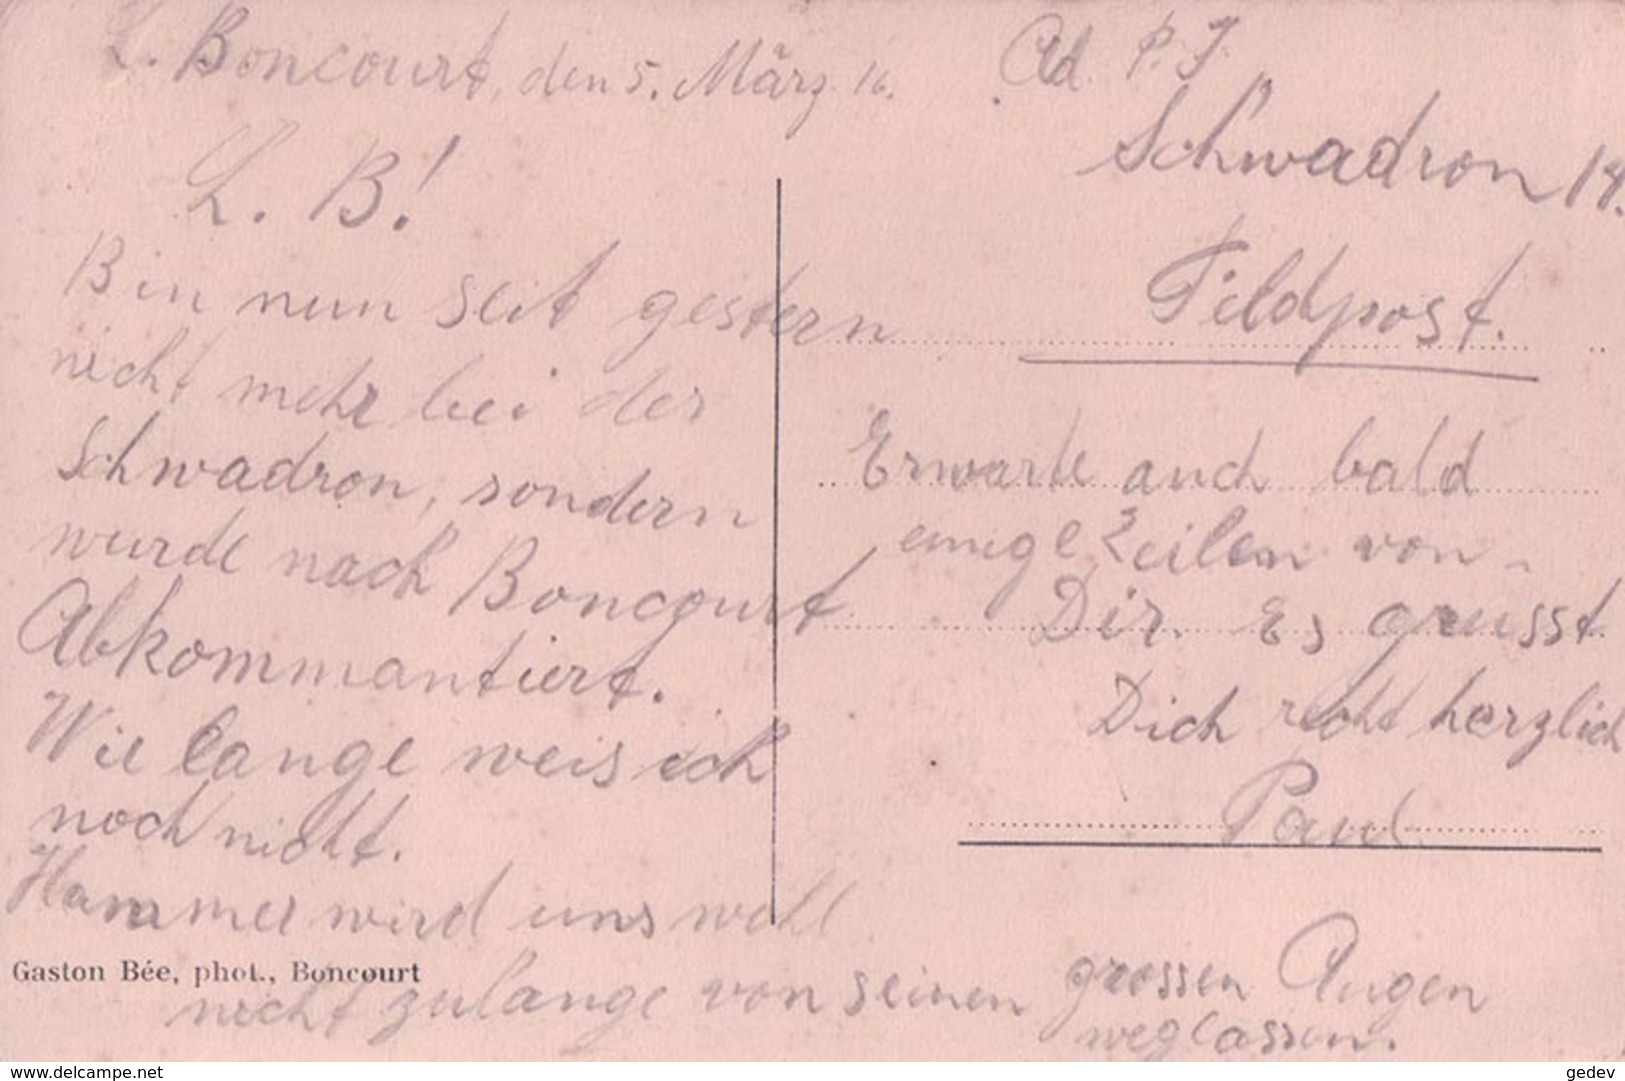 L. Boncourt, den 5. März 16.
L. B!
Bin nun seit gestern
nicht mehr bei der
Schwadron, sondern
wurde nach Boncourt
Abkommantiert.
Wie lange weis ich
noch nicht.
Hammer wird uns wohl
nicht zulange von seinen grossen Augen
weglassen.
Gaston Bée, phot., Boncourt
Ad. P. J.
Schwadron 14.
Feldpost.
Erwarte auch bald
einige Zeilen von
Dir. Es grusst
Dich recht herzlich
Paul
delcampe.net
gedev